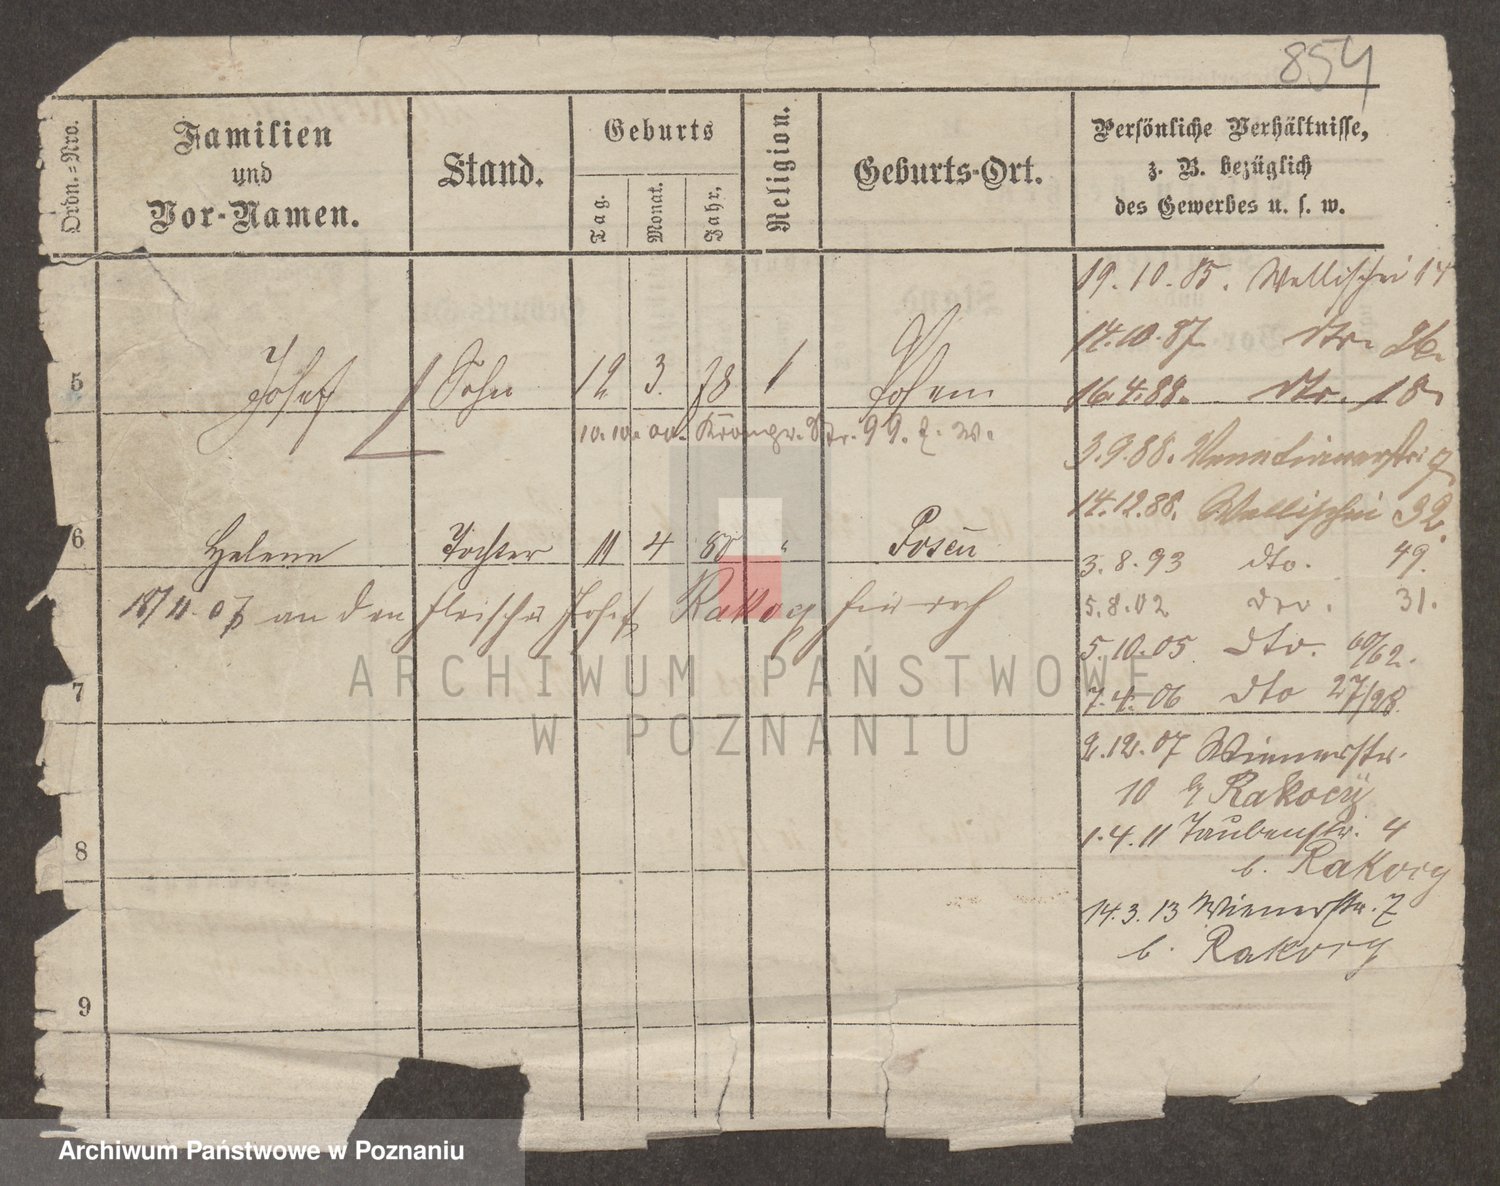 854
Ordn.=Nro.
Familien
und
Vor-Namen.
Stand.
Geburts
Tag.
Monat.
Jahr.
Religion.
Geburts-Ort.
Persönliche Verhältnisse,
z. B. bezüglich
des Gewerbes u. s. w.
19.10.85. Wallischei 14
14.10.87. dto. 26.
16.4.88. dto. 18
3.9.88. Venetianerstr. 9
14.12.88. Wallischei 32.
3.8.93 dto. 49.
5.8.02 dto. 31.
5.10.05 dto. 60/62.
7.4.06 dto 27/28.
2.12.07 Wienerstr.
10 b/ Rakocy
1.4.11 Taubenstr. 4
b. Rakocy
14.3.13 Wienerstr. 7
b. Rakocy
5 Josef Sohn 12 3. 78 1 Posen
10.10.00. Kronpr. Str. 99. z. W.
6 Helene Tochter 11 4 80 " Posen
18/11.07 an den Fleischer Josef Rakocy
7
8
9
ARCHIWUM PAŃSTWOWE
W POZNANIU
Archiwum Państwowe w Poznaniu